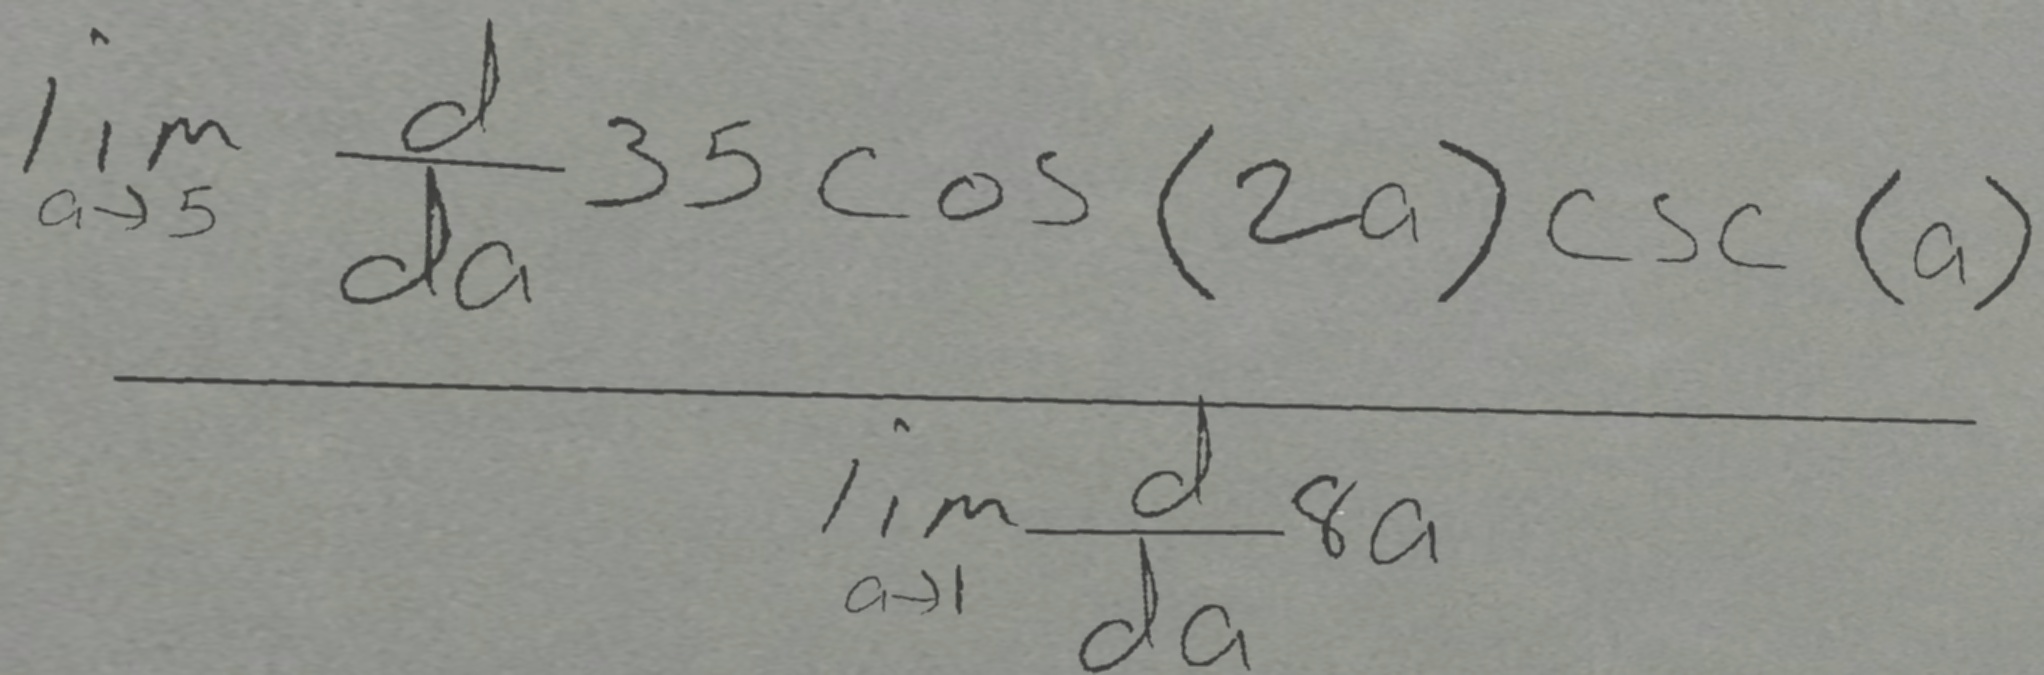 \frac{\lim_{a \to 5} \frac{d}{da} 35 \cos(2a) \csc(a)}{\lim_{a \to 1} \frac{d}{da} 8a}